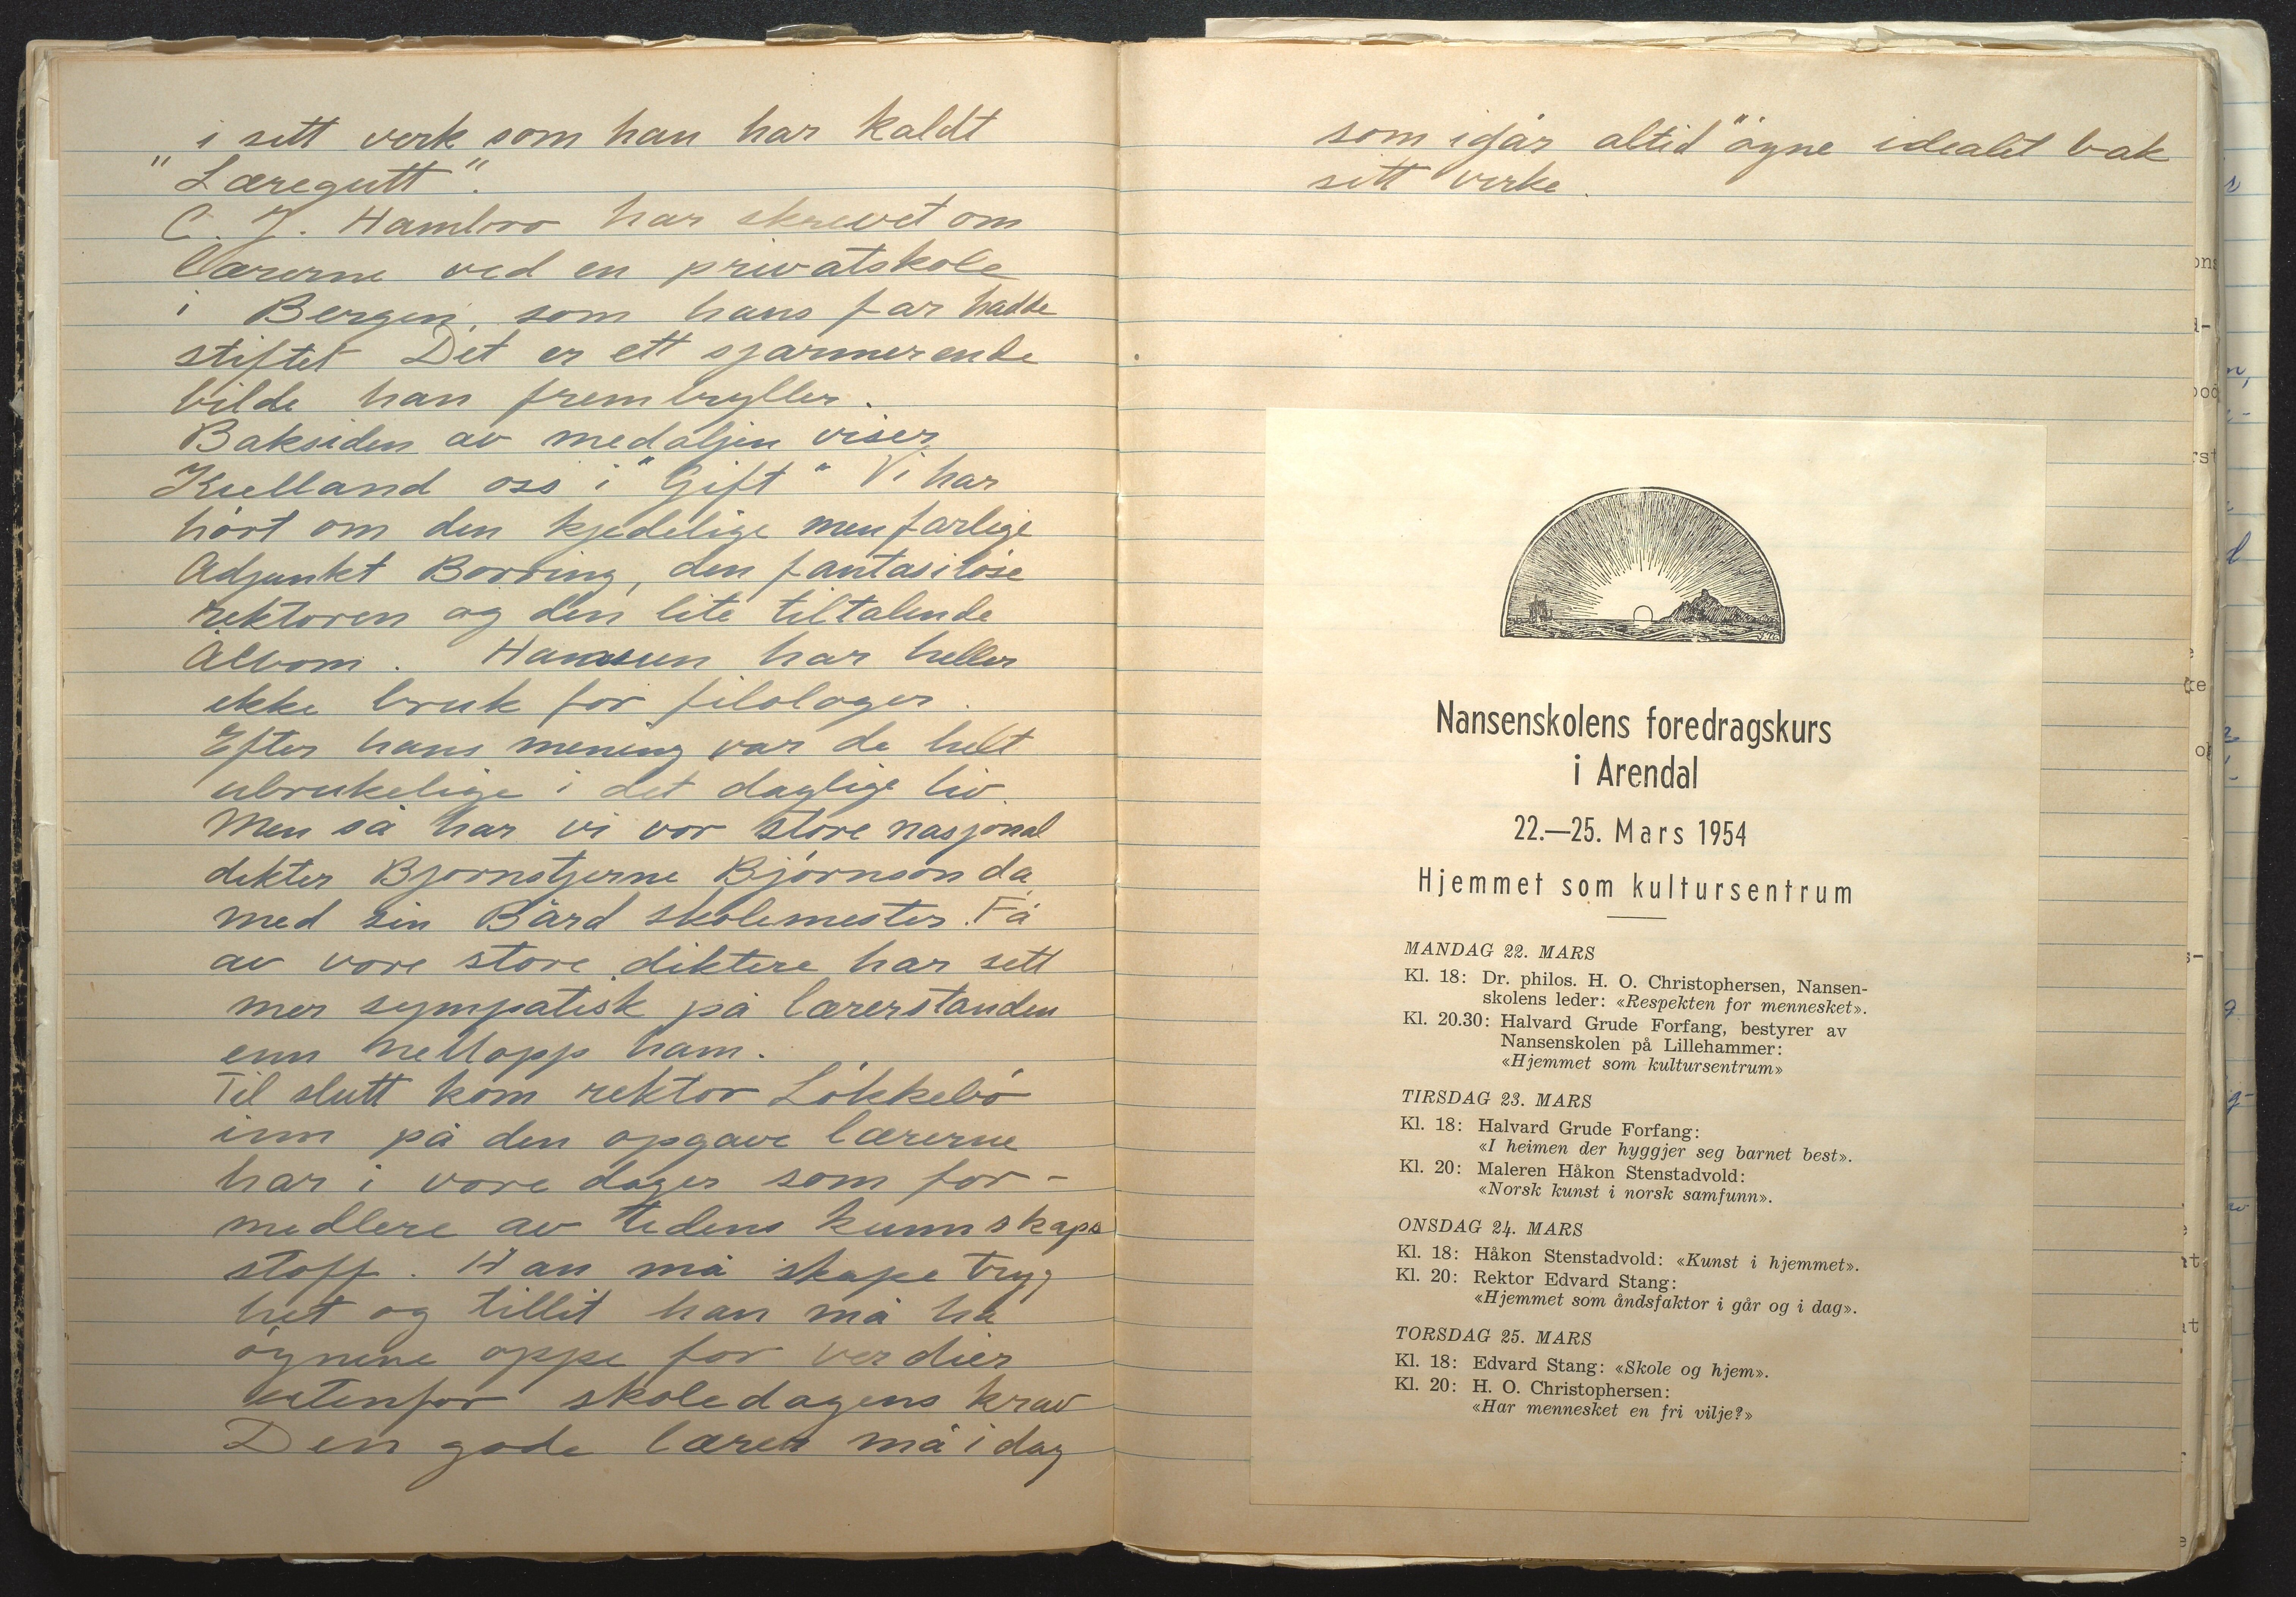 i sett verk som han har kaldt
"Læregutt".
C. J. Hambro har skrevet om
lærerne ved en privatskole
i Bergen, som hans far hadde
stiftet Det er ett sjarmerende
bilde han frembryller.
Baksiden av medaljen viser
Kielland oss i "Gift" Vi har
hört om den kjedelige men farlige
Adjunkt Borring, den fantasilöse
rektoren og den lite tiltalende
Aalbom. Hamsun har heller
ikke bruk for filologer.
Efter hans mening var de helt
ubrukelige i det daglige liv.
Men så har vi vor store nasjonal
dikter Bjørnstjerne Björnson da
med sin Bård skolemester. Få
av vore store diktere har sett
mer sympatisk på lærerstanden
enn nettopp ham.
Til slutt kom rektor Lökkebö
inn på den opgave lærerne
har i vore dager som for-
medlere av tidens kunnskaps
stoff. Han må skape tryg
het og tillit han må ha
öynene oppe for verdier
utenfor skoledagens krav
Den gode lærer må i dag
som igår altid öyne idealet bak
sitt virke.
Nansenskolens foredragskurs
i Arendal
22.—25. Mars 1954
Hjemmet som kultursentrum
MANDAG 22. MARS
Kl. 18: Dr. philos. H. O. Christophersen, Nansen-
skolens leder: «Respekten for mennesket».
Kl. 20.30: Halvard Grude Forfang, bestyrer av
Nansenskolen på Lillehammer:
«Hjemmet som kultursentrum»
TIRSDAG 23. MARS
Kl. 18: Halvard Grude Forfang:
«I heimen der hyggjer seg barnet best».
Kl. 20: Maleren Håkon Stenstadvold:
«Norsk kunst i norsk samfunn».
ONSDAG 24. MARS
Kl. 18: Håkon Stenstadvold: «Kunst i hjemmet».
Kl. 20: Rektor Edvard Stang:
«Hjemmet som åndsfaktor i går og i dag».
TORSDAG 25. MARS
Kl. 18: Edvard Stang: «Skole og hjem».
Kl. 20: H. O. Christophersen:
«Har mennesket en fri vilje?»